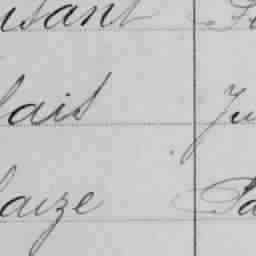 usant
lais Ju
aize Pa